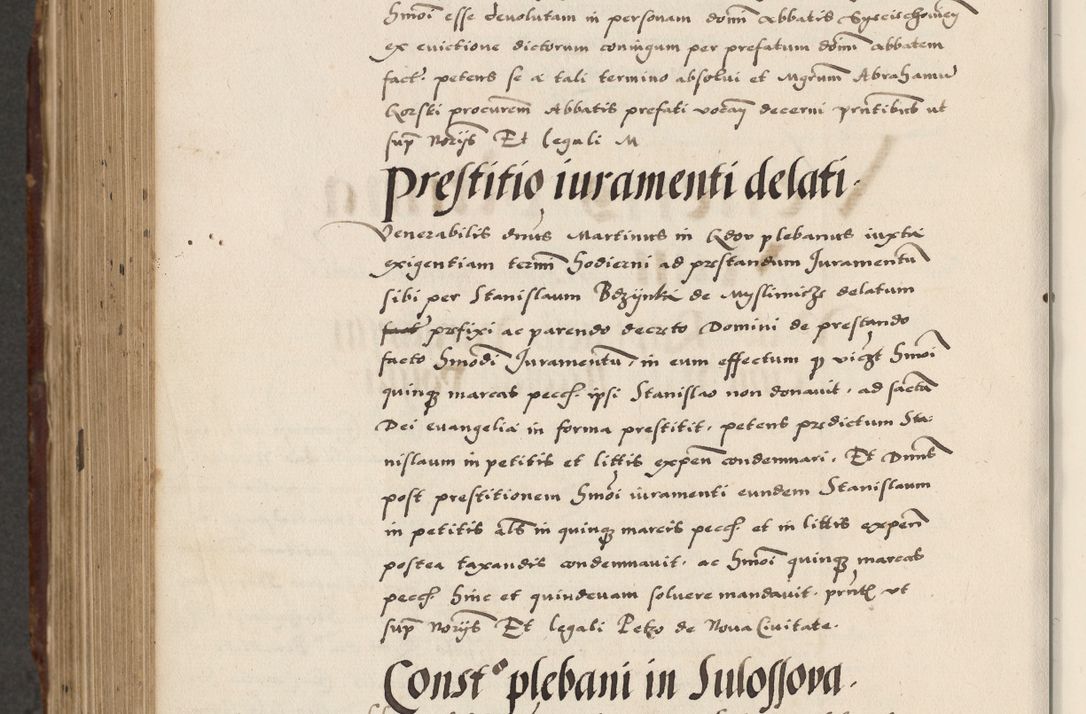 hmoi esse devolutam in personam domini Abbatis
ex evictione dictorum coniugum per prefatum domi Abbatem
fact. petens se a tali termino absolvi et Mgrum Abrahamu
Gorski procurem Abbatis prefati vocan decerni prntibus ut
sup Norijs Et legali M
Prestitio iuramenti delati.
Venerabilis dnus Martinus in Gdov plebanus iuxta
exigentiam termi hodierni ad prstandum Juramentu
sibi per Stanislaum Bdzynki de Myslimicze delatum
prfixi ac parendo decrto Domini de prestando
facto hmodi Juramentu, in eum effectum q viczt hmoi
quinq marcas pecch. ipsi Stanislao non donavit, ad sacta
Dei euangelia in forma prestitit, petens prdictum Sta:
nislaum in petitis et littis expen condemnari. Et Dnus
post prestitionem hmoi iuramenti eundem Stanislaum
in petitis als in quinq marcis pecch. et in littis expen
postea taxandis condemnavit, ac hmoi quinq marcas
pecch hinc et quindenam solvere mandavit. prntb ut
sup Norijs Et legali Petro de Nova Civitate.
Const° plebani in Sulossova.